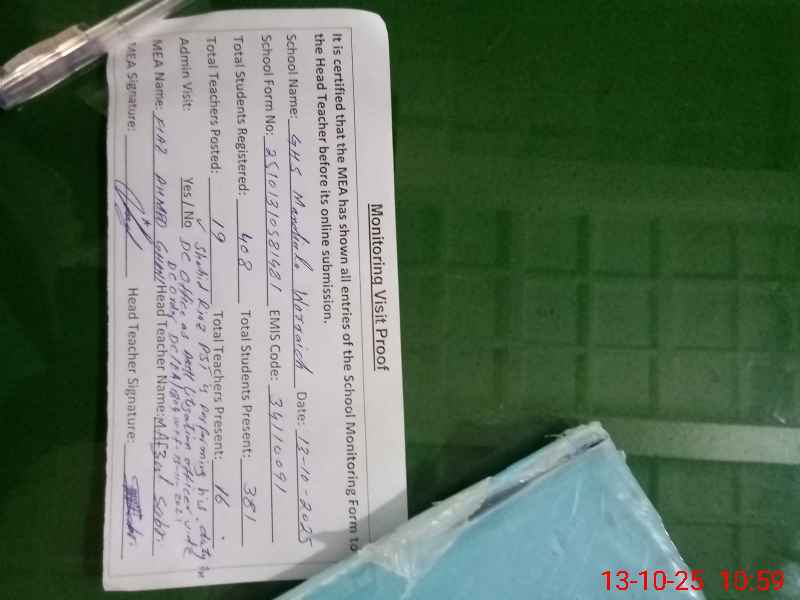 Monitoring Visit Proof
It is certified that the MEA has shown all entries of the School Monitoring Form to
the Head Teacher before its online submission.
School Name: GHS Mandiala Warraich Date: 13-10-2025
School Form No: 25101310581481 EMIS Code: 34110091
Total Students Registered: 408 Total Students Present: 381
Total Teachers Posted: 19 Total Teachers Present: 16
Admin Visit: Yes / No ✓ Shahid Riaz PST is performing his duty in
DC Office as litigation officer vide
DC order
MEA Name: FIAZ AHMAD GHANI Head Teacher Name: Sabir
MEA Signature: Head Teacher Signature:
13-10-25 10:59